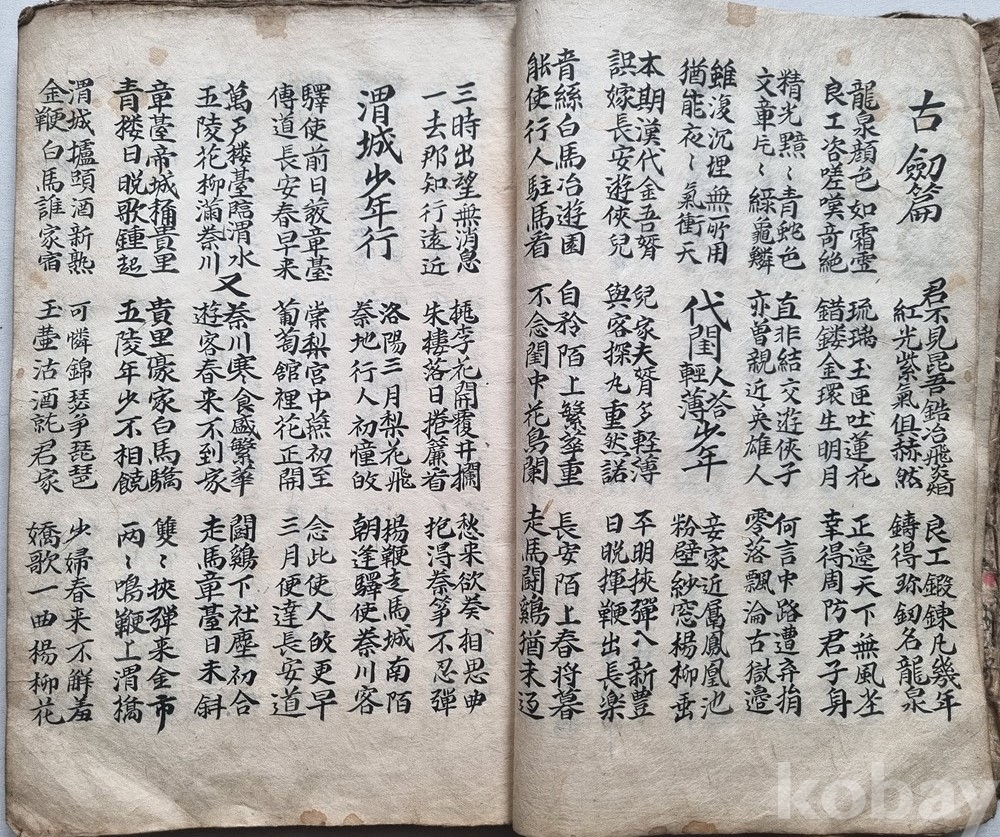 古劒篇
君不見昆吾鋯冶飛炎烟
紅光紫氣俱赫然
良工鍛鍊凢幾年
鑄得弥釰名龍泉
龍泉顔色如霜雪
良工咨嗟嘆奇絶
琉璃玉匣吐蓮花
錯鏤金環生明月
正邉天下無風尘
幸得周防君子身
精光黯〻青蛇色
文章片〻綠龜鱗
直非結交遊俠子
亦曽親近英雄人
何言中路遭弃捐
零落飄淪古獄邉
雖復沉埋無所用
猶能夜〻氣衝天
代閨人答輕薄少年
妾家近属鳳凰池
粉壁紗窓楊柳垂
本期漢代金吾婿
誤嫁長安遊俠兒
兒家夫婿多輕薄
與客探丸重然諾
平明挾彈入新豊
日晩揮鞭出長樂
音絲白馬冶遊園
能使行人駐馬看
自矜陌上繁華重
不念閨中花鳥闌
長安陌上春将暮
走馬鬪鷄猶未返
三時出望無消息
一去那知行遠近
桃李花開覆井欄
朱樓落日捲簾看
愁来欲奏相思曲
把得秦箏不忍彈
渭城少年行
洛陽三月梨花飛
秦地行人初憧故
揚鞭走馬城南陌
朝逢驛使秦川客
驛使前日發章臺
傳道長安春早来
棠梨宮中燕初至
葡萄館裡花正開
念此使人故更早
三月便達長安道
萬戶樓臺臨渭水
五陵花柳滿秦川
又
秦川寒食盛繁華
遊客春来不到家
鬪鷄下社塵初合
走馬章臺日未斜
章臺帝城稱貴里
青楼日晩歌鍾起
貴里豪家白馬驕
五陵年少不相饒
雙〻挾彈来金市
兩〻鳴鞭上渭橋
渭城壚頭酒新熟
金鞭白馬誰家宿
可憐錦瑟箏琵琶
玉壷沽酒就君家
少婦春来不解羞
嬌歌一曲楊柳花
kobay